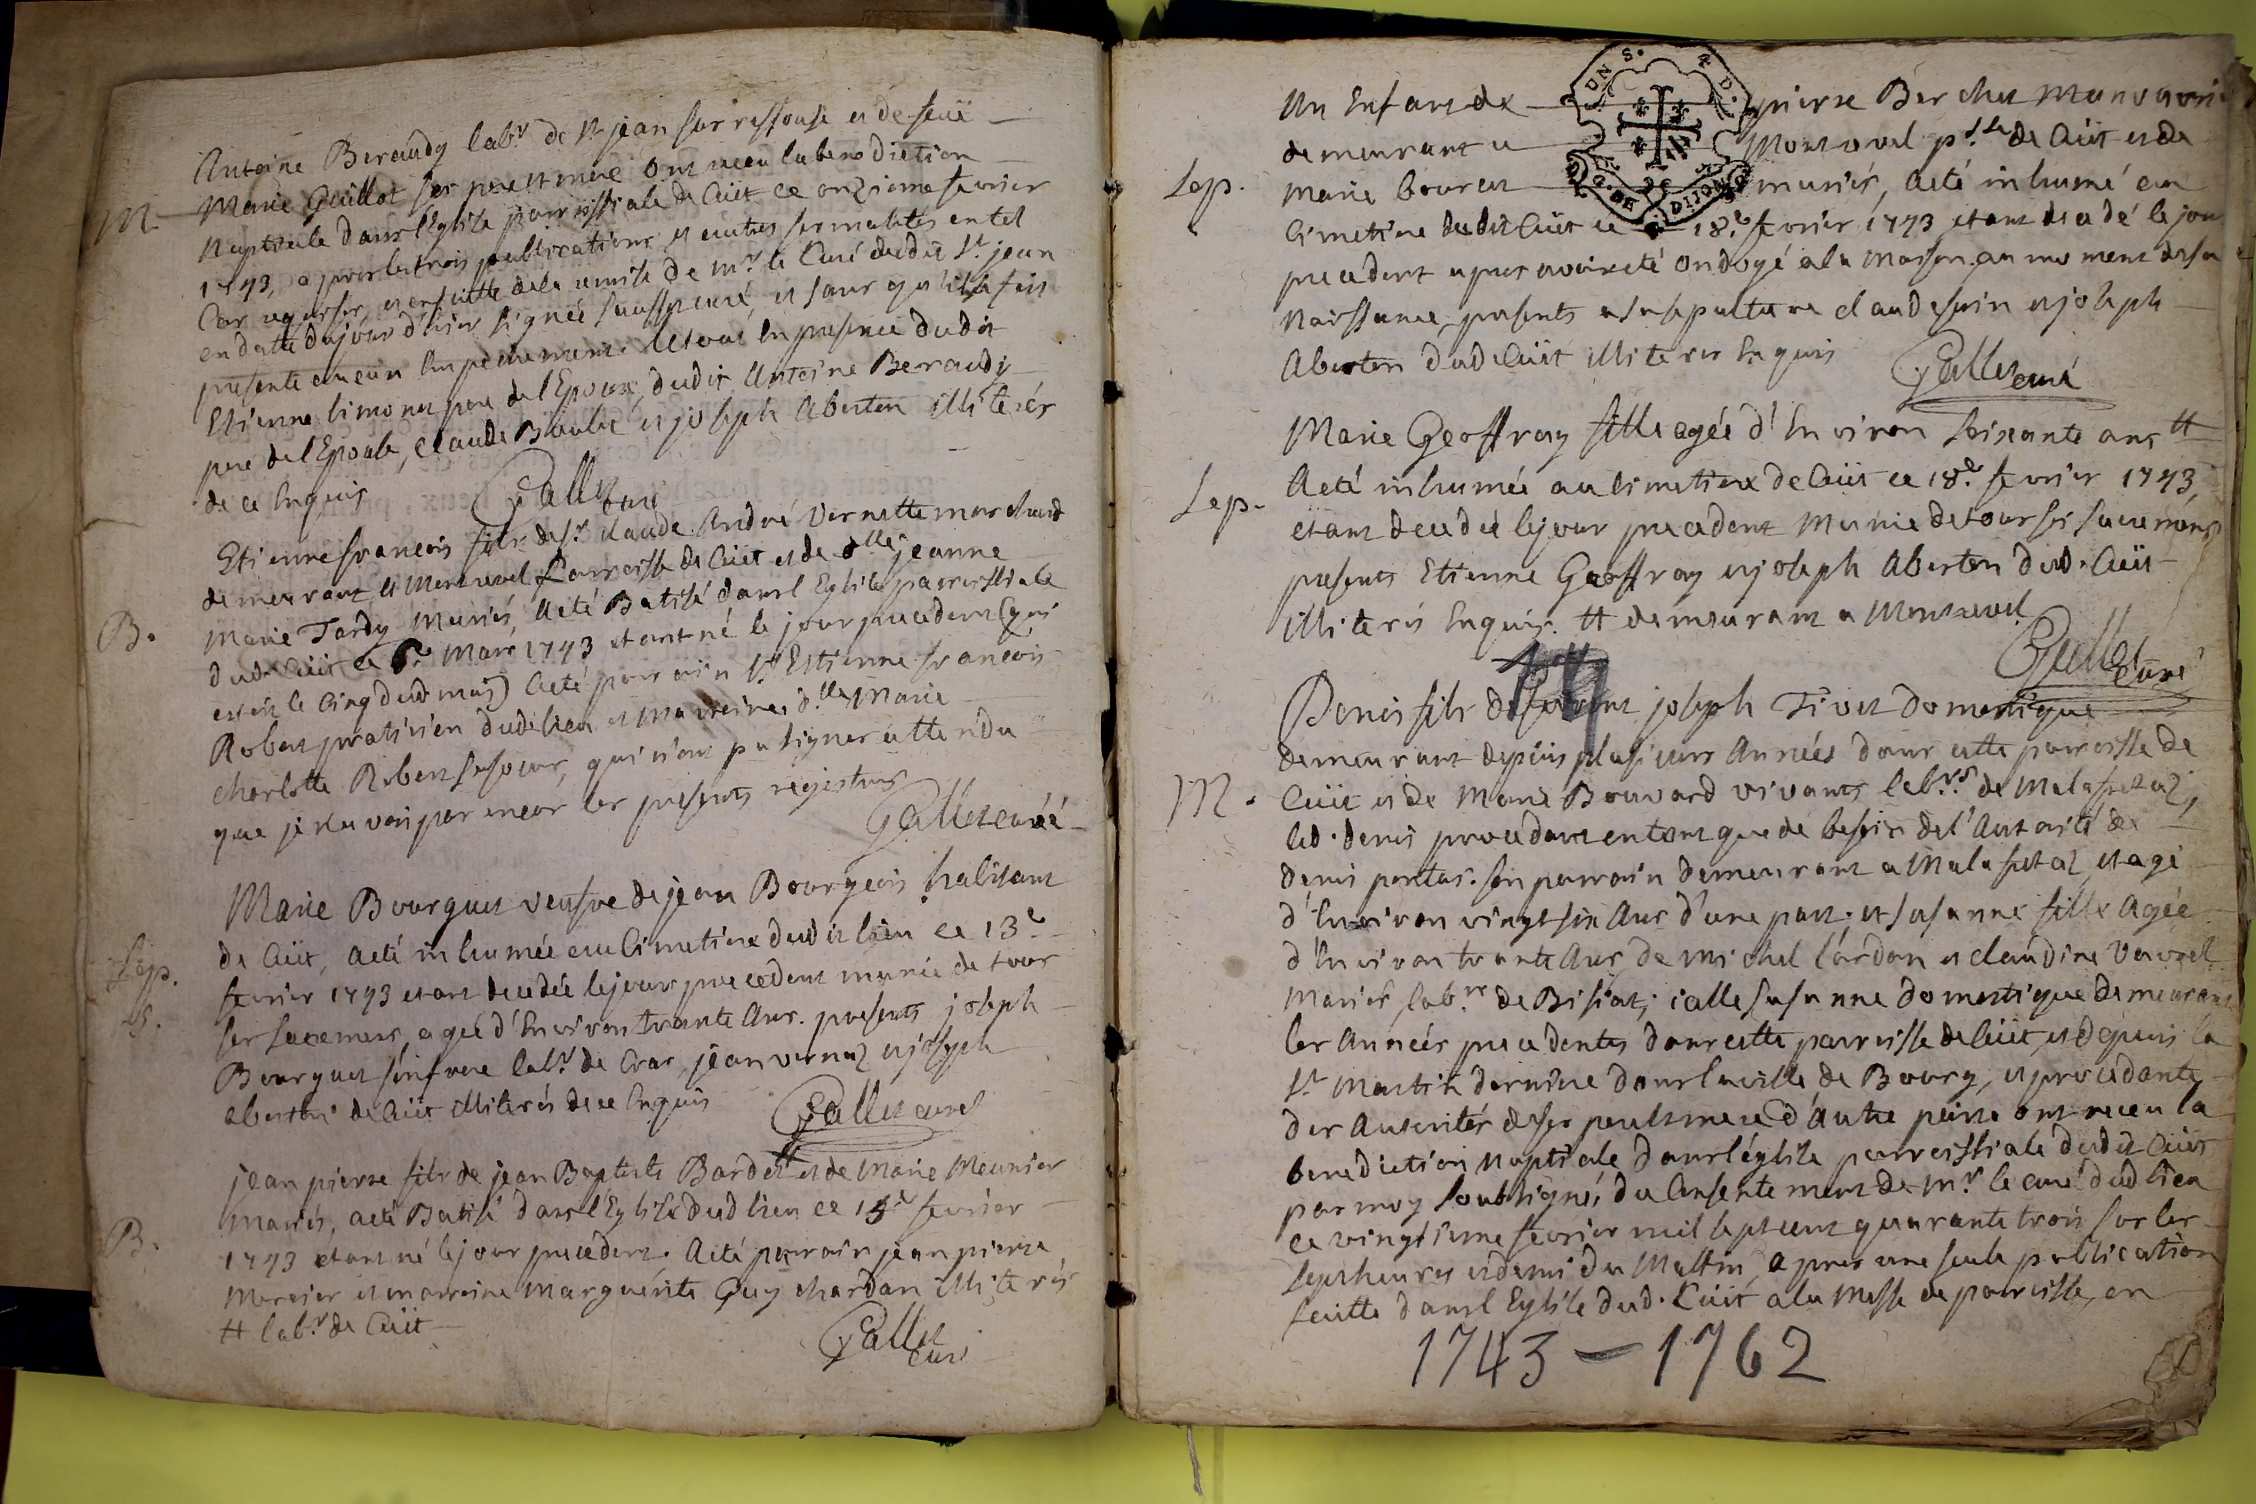 Antoine Beraudy lab.r de St jean sur ressouse et de feüe
M Marie Guillot ses pere et mere ont receu la benediction
Nuptiale dans l'Eglise parroissiale de Cüet ce onzieme fevrier
1743, apres les trois publications et autres formalités en tel
Cas requises, et ensuitte de la remise de Mr. le Curé dudit St. jean
en datte du jour d'hier signée curé et sans qu'il se soit
presenté aucun Empechement. le tout En presence dudit
Etienne pere de l'Epoux, dudit Antoine Beraudy
pere de l'Epouse, Claude et joseph Aberten illiterés
de ce Enquis Gallet curé
Etienne francois fils de sr. claude André Vernette marchand
demeurant a Montrevel Parroisse de Cüet et de dlle jeanne
B. Marie Tardy Mariés, A eté Batisé dans l'Eglise parroissiale
dud. Cüet ce Mars 1743 etant né le jour precedent (qui
est le cinq dud. mois) A eté parrain sr Estienne francois
Robert praticien dud. lieu et Marreine dlle Marie
charlotte Robert sa soeur, qui n'ont pu signer attendu
que je n'avois pas encor les presents registres
Gallet curé
Marie Bourguet veufve de jean Bourgeois habitant
de Cüet, A eté inhumée au Cimetiere dudit lieu ce 13e
Sep. fevrier 1743 etant decedée le jour precedent munie de tous
ses sacemens, agée d'Environ trante Ans. presents joseph
Bourguet son frere lab.r de Cras, jean vernaz et joseph
aberten de Cüet illiterés de ce Enquis Gallet curé
jean pierre fils de jean Baptiste Bardet # et de Marie Meunier
Mariés, a eté Batisé dans l'Eglise dud lieu ce fevrier
B. 1743 etant né le jour precedent. A eté parrain jean pierre
Mercier et marreine Marguerite Guychardan illiterés
# lab.r de Cüet
Gallet curé
Un Enfant de pierre Berchet Manouvrier
demeurant a Montrevel p.sse de Cüet et de
Sep. Marie bouret mariés, A eté inhumé au
Cimetiere dudit Cüet ce 18e fevrier 1743 etant decedé le jour
precedent apres avoir eté ondoyé a la Maison au moment de sa
Naissance, presents a sa sepulture claude et joseph
Aberten dud. Cüet illiteres Enquis Gallet curé
Marie Geoffray fille agée d'Environ soixante ans #
Sep. A eté inhumée au cimetiere de Cüet ce 18e fevrier 1743,
etant decedée le jour precedent Munie de tous ses sacemens
presents Etienne Geoffray et joseph Aberten dud. Cüet
illiterés Enquis. # demeurant a Montrevel
Gallet curé
17
Denis fils de joseph Tivet domestique
demeurant depuis plusieurs Années dans cette parroisse de
M. Cüet et de Marie Bouvard vivants lab.rs de Malafretaz,
led. denis procedant entant que de besoin de l'Autorité de
denis son parrain demeurant a Malafretaz et agé
d'Environ vingt six Ans d'une part; et susanne fille Agée
d'Environ trante Ans de Michel Cardon et claudine
Mariés, lab.rs de Bisiat; icelle susanne domestique demeurant
les Années precedentes dans cette parroisse de Cüet, et depuis la
St Martin derniere dans la ville de Bourg, et procedante
des Autorités de ses pere et mere d'autre part ont receu la
benediction nuptiale dans l'église parroissiale dudit Cüet
par moy soubsigné, du Consentement de Mr. le curé dud lieu
ce vingtieme fevrier mil septcent quarante trois sur les
sept heures et demi du Mattin, apres une seule publication
faitte dans l'Eglise dud. Cüet a la Messe de parroisse, en
1743 – 1762